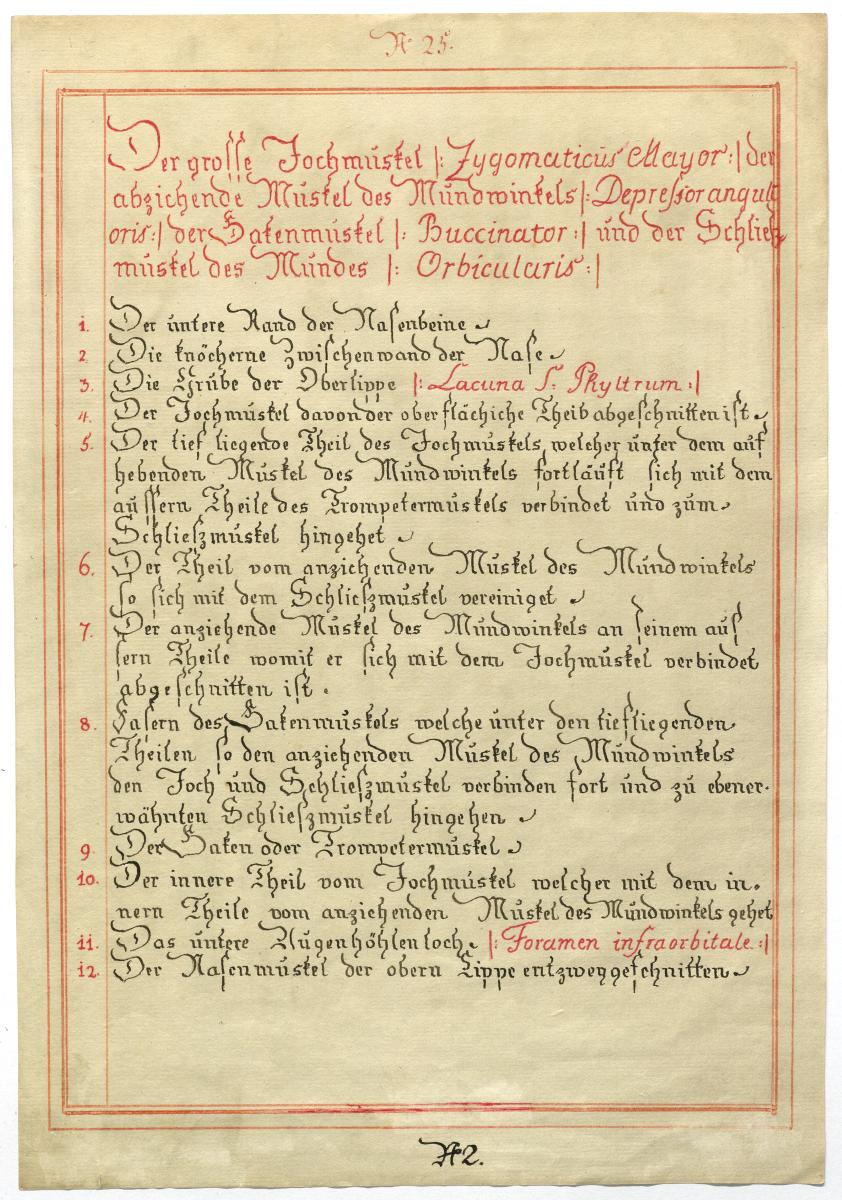 Nº 25.
Der grosse Jochmuskel |: Zygomaticus Mayor :| der
abziehende Muskel des Mundwinkels |: Depressor anguli
oris :| der Bakenmuskel |: Buccinator :| und der Schliesz
muskel des Mundes |: Orbicularis :|
1. Der untere Rand der Nasenbeine
2. Die knöcherne Zwischenwand der Nase
3. Die Grube der Oberlippe |: Lacuna S: Phyltrum :|
4. Der Jochmuskel davon der oberflächiche Theib abgeschnitten ist
5. Der tief liegende Theil des Jochmuskels welcher unter dem auf
hebenden Muskel des Mundwinkels fortläuft sich mit dem
aussern Theile des Trompetermuskels verbindet und zum
Schlieszmuskel hingehet
6. Der Theil vom anziehenden Muskel des Mundwinkels
so sich mit dem Schlieszmuskel vereiniget
7. Der anziehende Muskel des Mundwinkels an seinem aus
sern Theile womit er sich mit dem Jochmuskel verbindet
abgeschnitten ist.
8. Fasern des Bakenmuskels welche unter den tiefliegenden
Theilen so den anziehenden Muskel des Mundwinkels
den Joch und Schlieszmuskel verbinden fort und zu ebener-
wähnten Schlieszmuskel hingehen
9. Der Baken oder Trompetermuskel
10. Der innere Theil vom Jochmuskel welcher mit dem in-
nern Theile vom anziehenden Muskel des Mundwinkels gehet
11. Das untere Augenhöhlenloch |: Foramen infraorbitale :|
12. Der Nasenmuskel der obern Lippe entzweygeschnitten
Nº 2.